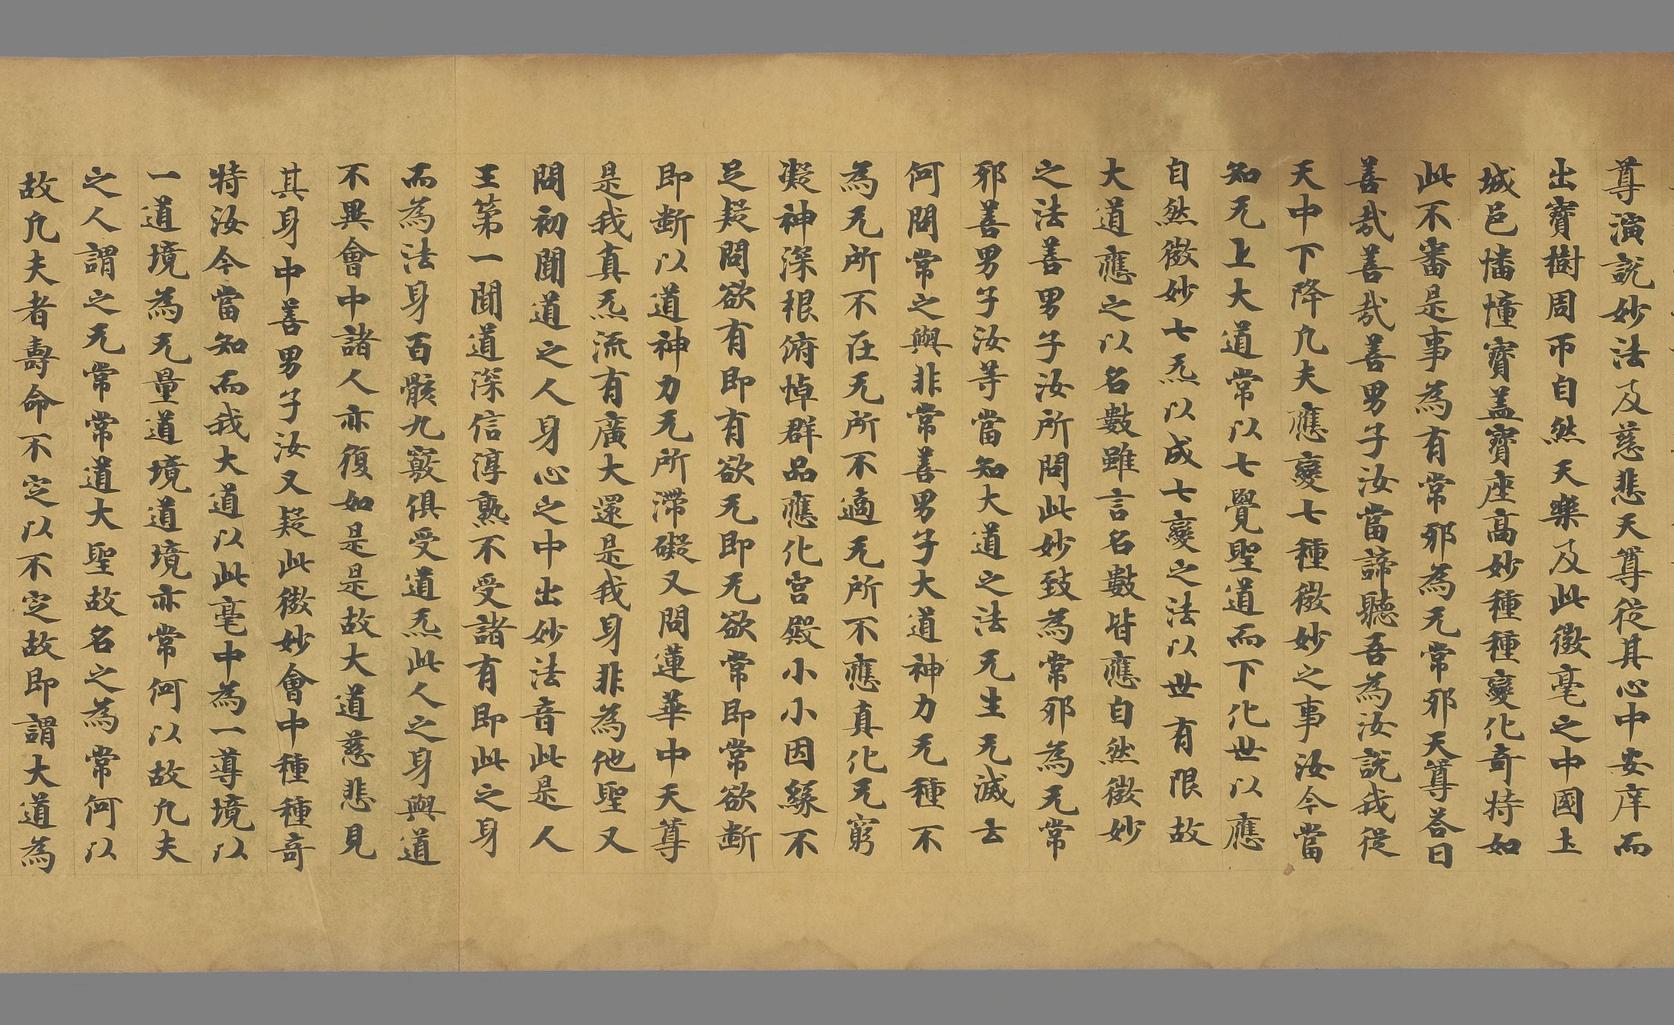 尊演説妙法及慈悲天尊從其心中安庠而
出寶樹周帀自然天樂及此微毫之中國土
城邑幡憧寶盖寶座髙妙種種變化竒特如
此不審是事為有常邪為无常邪天尊荅曰
善哉善哉善男子汝當諦聽吾為汝説我從
天中下降凢夫應變七種微妙之事汝今當
知无上大道常以七覺聖道而下化世以應
自然微妙七炁以成七變之法以世有限故
大道應之以名數雖言名數皆應自然微妙
之法善男子汝所問此妙致為常邪為无常
邪善男子汝等當知大道之法无生无滅去
何問常之與非常善男子大道神力无種不
為无所不在无所不適无所不應真化无窮
凝神深根俯悼群品應化宫殿小小因緣不
足疑問欲有即有欲无即无欲常即常欲斷
即斷以道神力无所滯礙又問蓮華中天尊
是我真炁流有廣大還是我身非為他聖又
問初聞道之人身心之中出妙法音此是人
王第一聞道深信淳熟不受諸有即此之身
而為法身百骸九竅俱受道炁此人之身與道
不異會中諸人亦復如是是故大道慈悲見
其身中善男子汝又疑此微妙會中種種竒
特汝今當知而我大道以此毫中為一導境以
一道境為无量道境道境亦常何以故凢夫
之人謂之无常常道大聖故名之為常何以
故凢夫者壽命不定以不定故即謂大道為